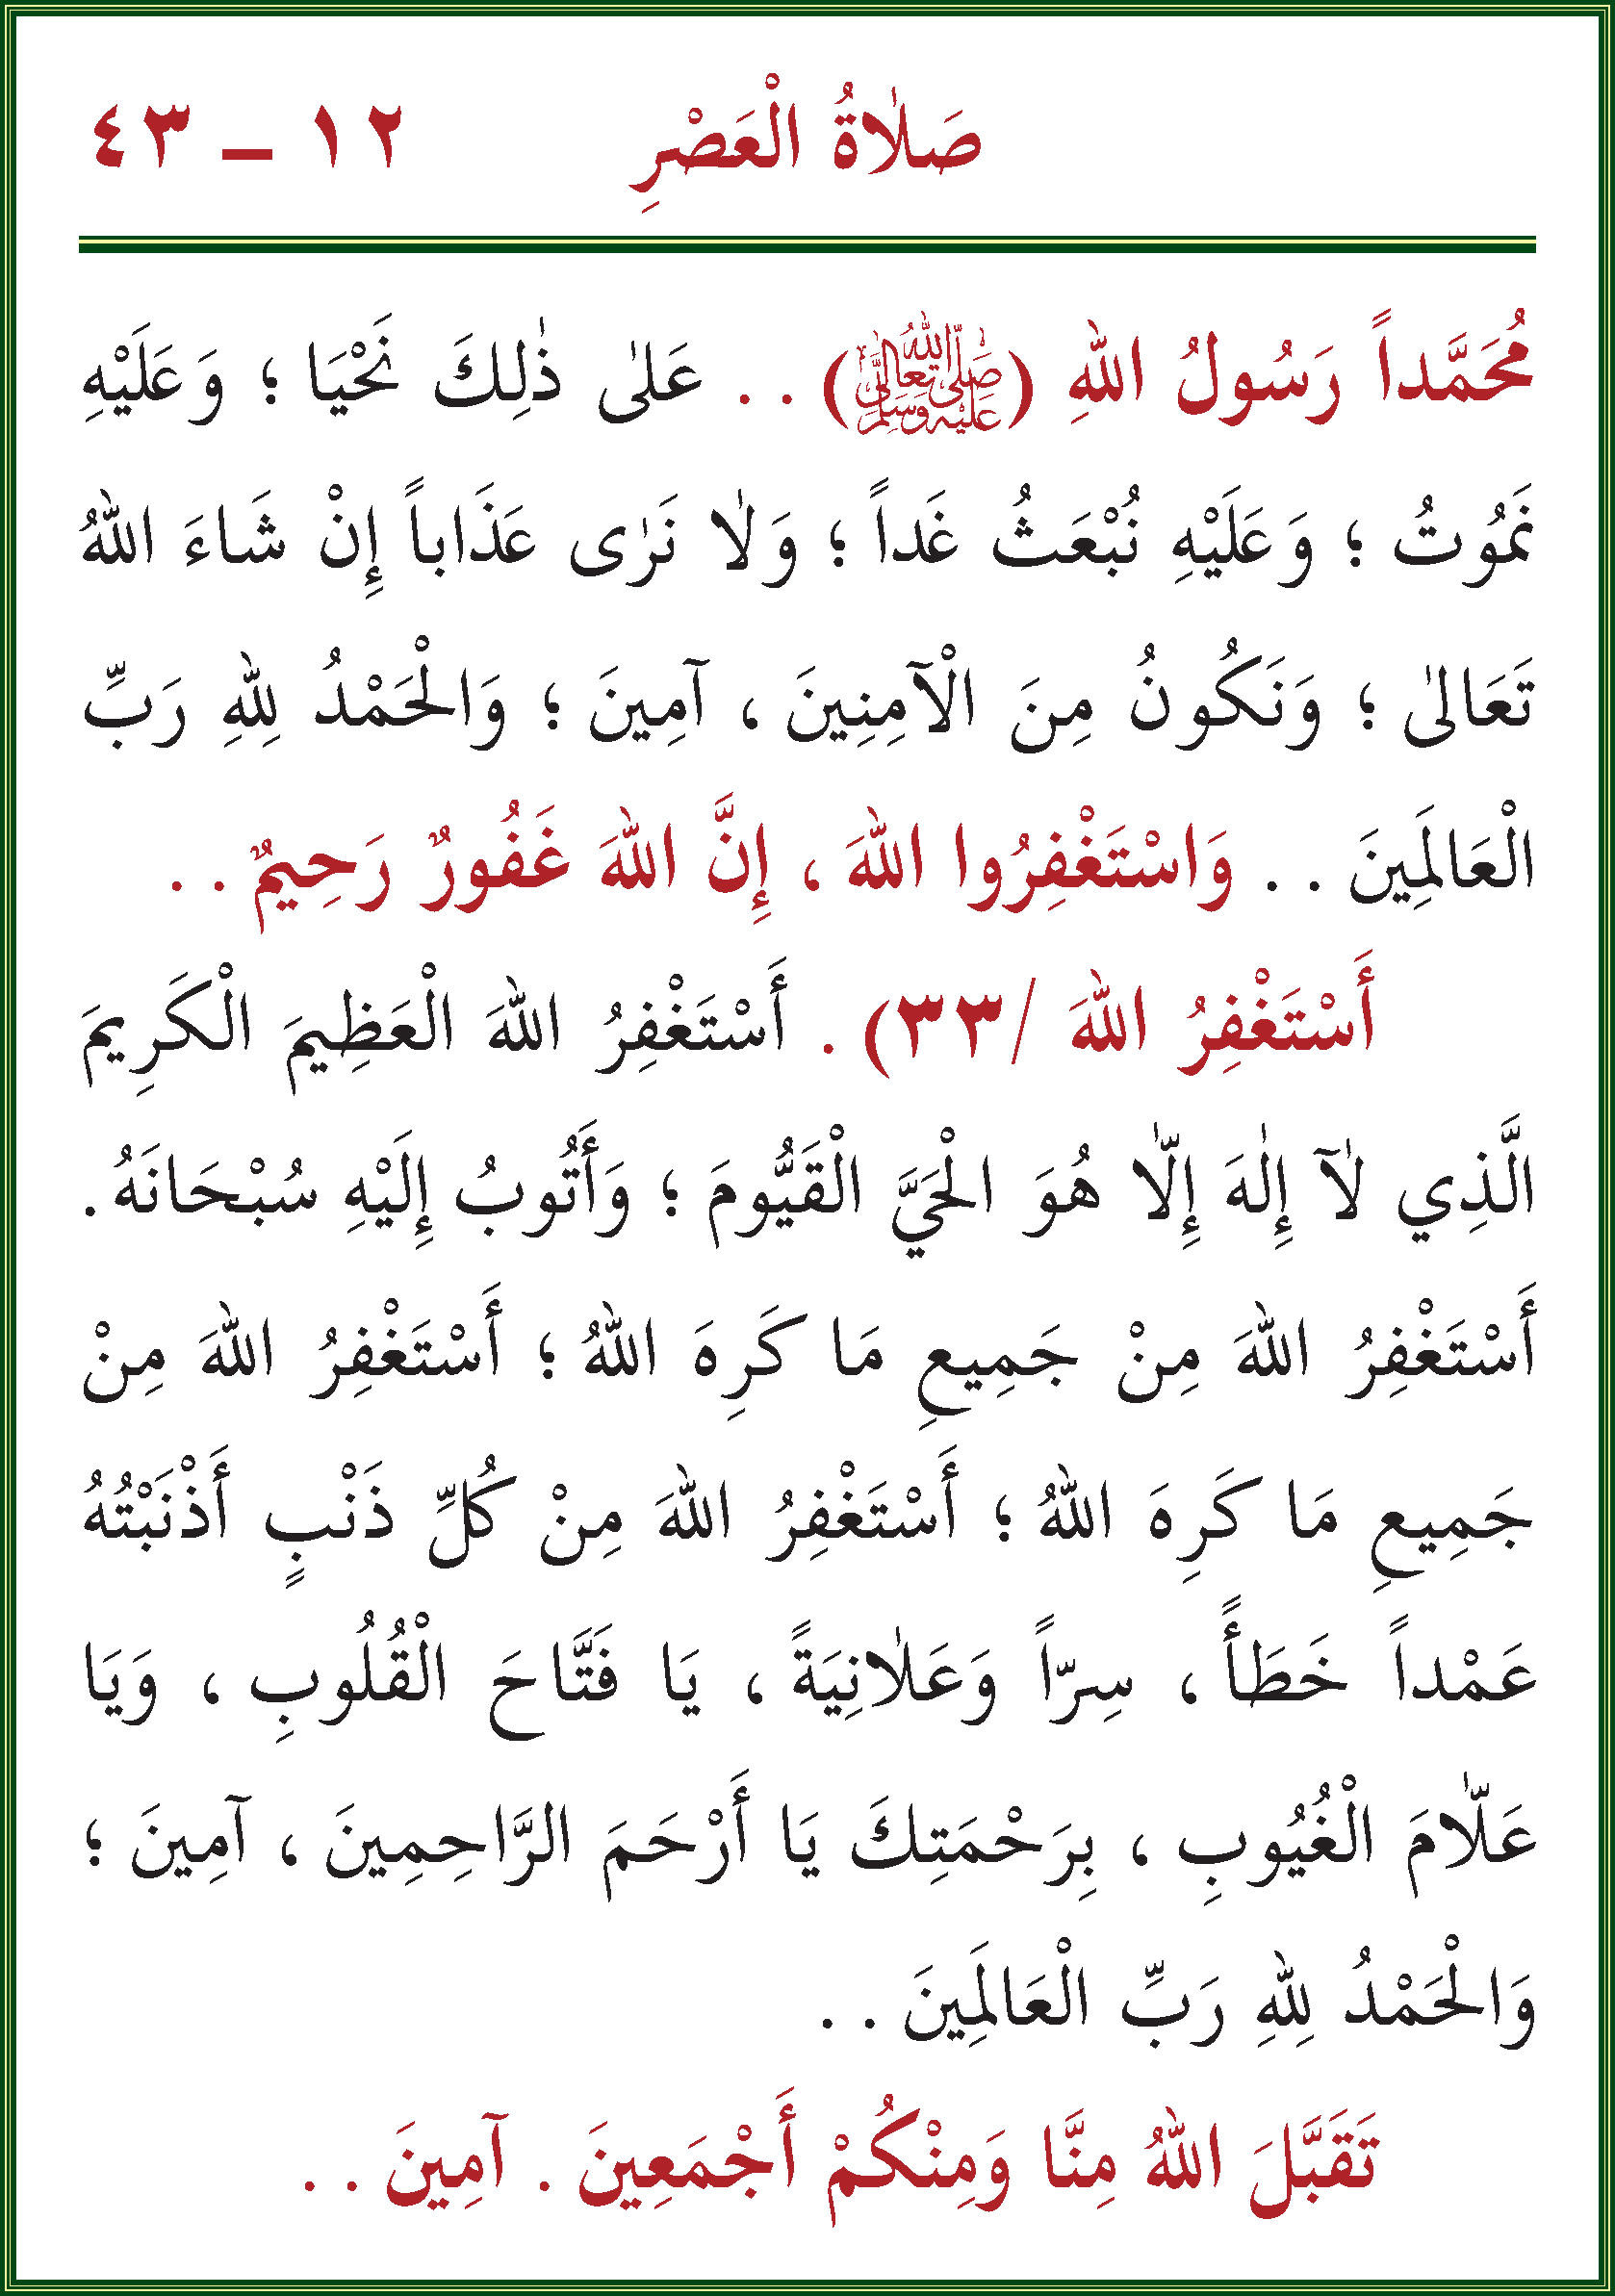 صَلَاةُ الْعَصْرِ ١٢ – ٤٣
مُحَمَّداً رَسُولُ اللهِ (صَلَّى اللهُ تَعَالَى عَلَيْهِ وَسَلَّمَ) . . عَلىٰ ذٰلِكَ نَحْيَا ؛ وَعَلَيْهِ
نَمُوتُ ؛ وَعَلَيْهِ نُبْعَثُ غَداً ؛ وَلٰا نَرٰى عَذَاباً إِنْ شَاءَ اللهُ
تَعَالىٰ ؛ وَنَكُونُ مِنَ الْآمِنِينَ ، آمِينَ ؛ وَالْحَمْدُ لِلهِ رَبِّ
الْعَالَمِينَ . . وَاسْتَغْفِرُوا اللهَ ، إِنَّ اللهَ غَفُورٌ رَحِيمٌ . .
أَسْتَغْفِرُ اللهَ /٣٣) . أَسْتَغْفِرُ اللهَ الْعَظِيمَ الْكَرِيمَ
الَّذِي لٰآ إِلٰهَ إِلّٰا هُوَ الْحَيَّ الْقَيُّومَ ؛ وَأَتُوبُ إِلَيْهِ سُبْحَانَهُ .
أَسْتَغْفِرُ اللهَ مِنْ جَمِيعِ مَا كَرِهَ اللهُ ؛ أَسْتَغْفِرُ اللهَ مِنْ
جَمِيعِ مَا كَرِهَ اللهُ ؛ أَسْتَغْفِرُ اللهَ مِنْ كُلِّ ذَنْبٍ أَذْنَبْتُهُ
عَمْداً خَطَأً ، سِرّاً وَعَلٰانِيَةً ، يَا فَتَّاحَ الْقُلُوبِ ، وَيَا
عَلّٰامَ الْغُيُوبِ ، بِرَحْمَتِكَ يَا أَرْحَمَ الرَّاحِمِينَ ، آمِينَ ؛
وَالْحَمْدُ لِلهِ رَبِّ الْعَالَمِينَ . .
تَقَبَّلَ اللهُ مِنَّا وَمِنْكُمْ أَجْمَعِينَ . آمِينَ . .